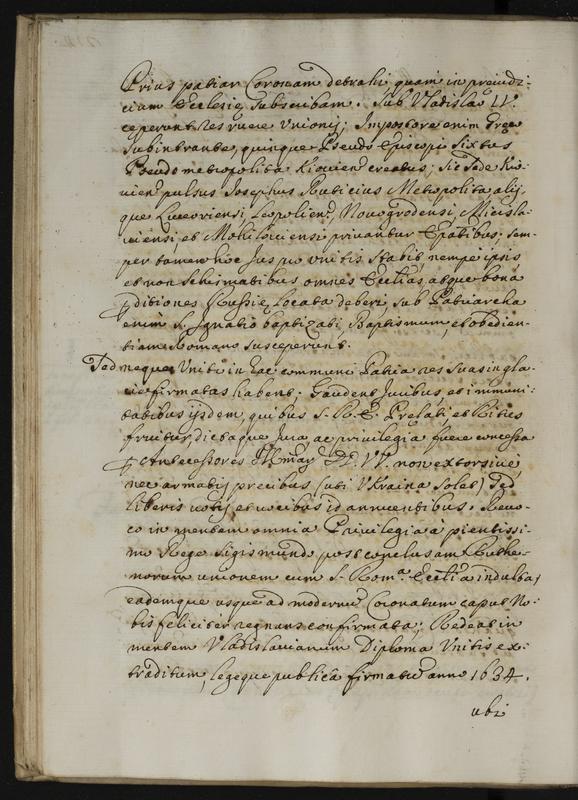 Prius patiar Coronam detrahi quam in præiudi:
cium Ecclesię subscribam. Sub Vladislao IV.
ceperunt res ruere Unionis; Impostore enim
subintrante, quinque Pseudo Episcopi Sixtus
Pseudometropolita Kiovien creatus; sic Sede Kio:
vien pulsus Josephus Ruticius Metropolita alij,
que Luceoriensi, Leopolien, Novogrodensi, Micisla:
viensi, et Mohiloviensi privantur Epatibus; sem:
per tamen hoc jus pro unitis stabit, nempe ipsis
et non Schismatibus omnes Ecctias, atque bona
p ditiones Russię locata deberi, sub Patriarcha
enim S. Ignatio baptizati, Baptismum, et obedien:
tiam Romano susceperunt.
Sed neque Uniti in hac communi Patria res suas in gla:
cie firmatas habent. Gaudent Juribus, et immuni:
tatibus ijsdem, quibus S. R. E. Prelati, et Ritus
fruitur, dictaque Jura, ac privilegia fuere concessa
p Antecessores VV. non extorsive,
nec armatis precibus (uti Ukraina solet) sed
liberis votis, et vocibus id annuentibus. Revo:
co in mentem omnia Privilegia à pientissi:
mo Rege Sigismundo post conclusam Ruthe:
norum unionem cum S. Rom.a Ecctia indulta,
eademque usque ad modernū Coronatum caput No:
bis feliciter regnans confirmata; Redeat in
mentem Vladislavianum Diploma Unitis ex:
traditum, legeque publicâ firmatū anno 1634.
ubi